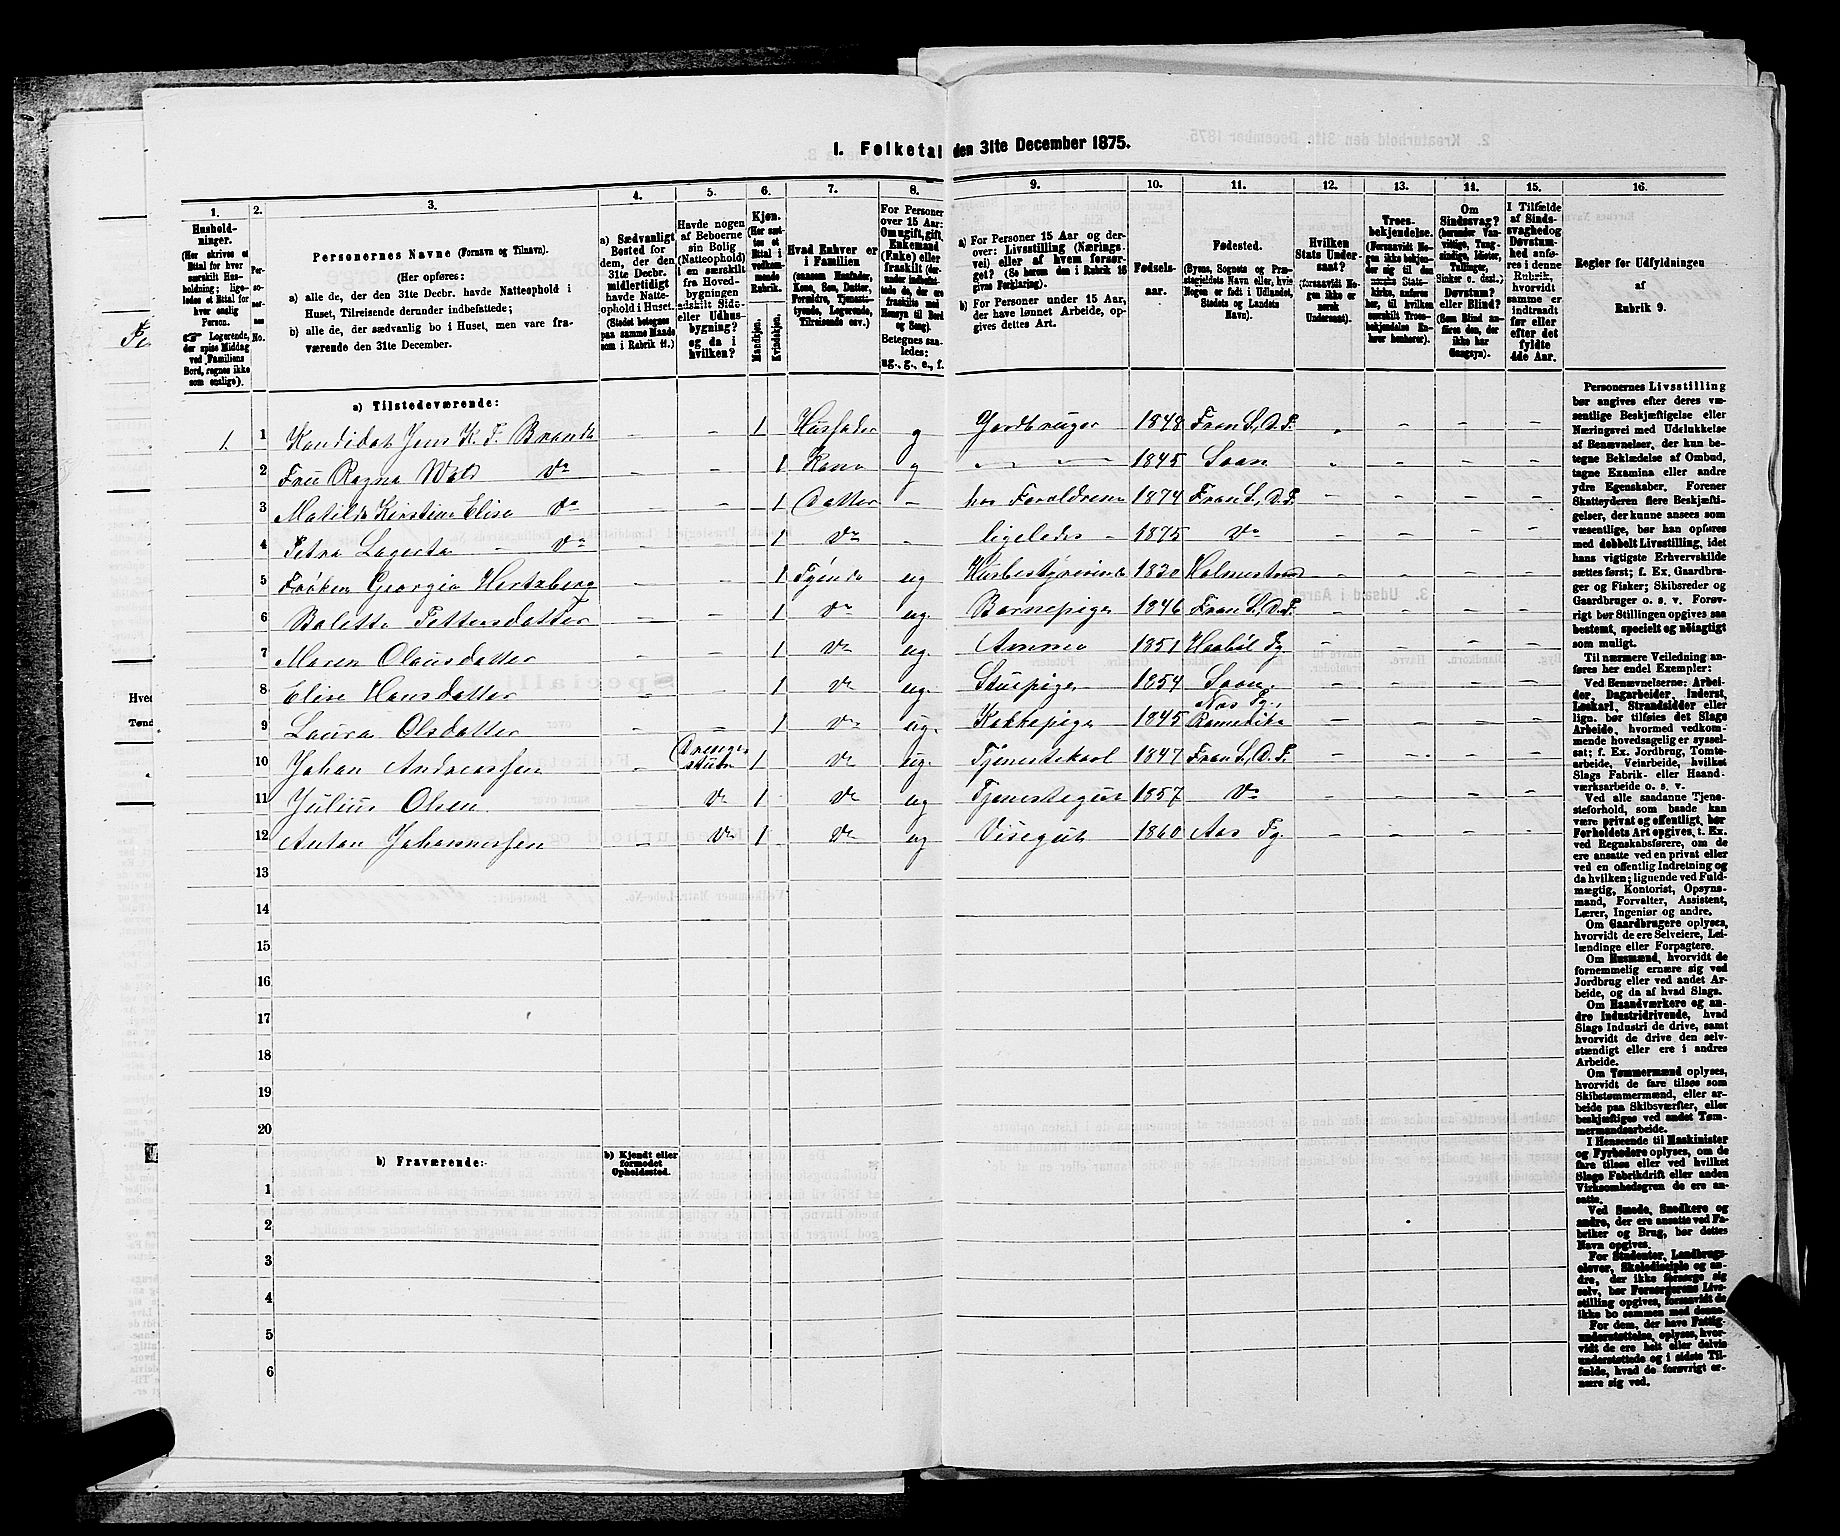 I. Folketal den 31te December 1875.
1. 2. 3. 4. 5. 6. 7. 8. 9. 10. 11. 12. 13. 14. 15. 16.
Husholdninger.
(Her skrives et Ettal for hver særskilt Husholdning; ligeledes et Ettal for hver enslig Person.
Logerende, der spise Middag ved Familiens Bord, regnes ikke som enslige).
Personernes No.
Personernes Navne (Fornavn og Tilnavn).
(Her opføres:
a) alle de, der den 31te Decbr. havde Natteophold i Huset, Tilreisende derunder indbefattede;
b) alle de, der sædvanlig bo i Huset, men vare fraværende den 31te December.
a) Sædvanligt Bosted for dem, der den 31te Decbr. midlertidigt havde Natteophold i Huset.
(Stedet betegnes paa samme Maade som i Rubrik 11.)
Havde nogen af Beboerne sin Bolig (Natteophold) i en særskilt fra Hovedbygningen adskilt Side- eller Udhusbygning? og da i hvilken?
Kjøn. (Her sættes et Ettal i vedkommende Rubrik.
Mandkjøn. Kvindekjøn.
Hvad Enhver er i Familien
(saasom Husfader, Kone, Søn, Datter, Forældre, Tjenestetyende, Logerende, Tilreisende osv.)
For Personer over 15 Aar: Om ugift, gift, Enkemand (Enke) eller fraskilt
Betegnes saaledes: ug., g., e., f.
a) For Personer 15 Aar og derover: Livsstilling (Næringsvei) eller af hvem forsørget? (Se herom den i Rubrik 16 givne Forklaring).
b) For Personer under 15 Aar, der have lønnet Arbeide, opgives dettes Art.
Fødselsaar.
Fødested.
(Byens, Sognets og Præstegjeldets Navn eller, hvis Nogen er født i Udlandet, Stedets og Landets Navn).
Hvilken Stats Undersaat?
(forsaavidt Nogen ikke er norsk Undersaat).
Troesbekjendelse.
(Forsaavidt Nogen ikke bekjender sig til den norske Statskirke, anføres her, til hvilken særskilt Troesbekjendelse Enhver henhører).
Om Sindssvag? (herunder Vanvittige, Tungsindige, Idioter, Tullinger, Sinker o. desl.) Døvstum? eller Blind? (Som Blind anføres den, der ikke har Gangsyn).
I Tilfælde af Sindssvaghed og Døvstumhed anføres i denne Rubrik, hvorvidt samme er indtraadt før eller efter det fyldte 4de Aar.
Regler for Udfyldningen af Rubrik 9.
a) Tilstedeværende:
1. 1 Kandidat Jens K. F. Brandt – – 1 Husfader g Gardbruger 1848 Fron S., D. F. – – – –
2 Fru Ragna Wold do – – 1 Kone g – – 1845 Soon – – – –
3 Matilde Kirstine Elise do – – 1 Datter – hos Forældrene 1874 Fron S., D. F. – – – –
4 Petra Lagerta – do – – 1 do – ligeledes 1875 do – – – –
5 Frøken Georgia Hertzberg – – 1 Tjende ug Husbestyrerinde 1830 Holmestrand – – – –
6 Bolette Pettersdatter – – 1 do ug. Barnepige 1846 Fron S., D. F. – – – –
7 Maren Olausdatter – – 1 do ug. Amme 1851 Haabøl Pg – – – –
8 Elise Hansdatter – – 1 do ug. Stuepige 1854 Soon. – – – –
9 Laura Olsdatter – – 1 do ug. Kokkepige 1845 Næs Pg., Romerike – – – –
10 Johan Andreassen – Drengestuen 1 do ug. Tjenestekarl 1847 Fron S., D. F. – – – –
11 Julius Olsen – do 1 do ug Tjenestegut 1857 do – – – –
12 Anton Johannessen – do 1 do ug Visegut 1860 Aas Pg – – – –
13
14
15
16
17
18
19
20
b) Fraværende:
b) Kjendt eller formodet Opholdssted.
1
2
3
4
5
6
Personernes Livsstilling bør angives efter deres væsentlige Beskjæftigelse eller Næringsvei med Udelukkelse af Benævnelser, der kun betegne Beklædelse af Ombud, tagne Examina eller andre ydre Egenskaber. Forener Skatteyderen flere Beskjæftigelser, der kunne ansees som væsentlige, bør han opføres med dobbelt Livsstilling, idet hans vigtigste Erhvervskilde sættes først; f. Ex. Gaardbruger og Fisker; Skibsreder og Gaardbruger o. s. v. Forøvrigt bør Stillingen opgives saa bestemt, specielt og nøiagtigt som muligt.
Til nærmere Veiledning anføres her endel Exempler:
Ved Benævnelserne: Arbeider, Dagarbeider, Inderst, Løskarl, Strandsidder eller lign. bør tilføies det Slags Arbeide, hvormed vedkommende hovedsagelig er sysselsat; f. Ex. Jordbrug, Tomtearbeide, Veiarbeide, hvilket Slags Fabrik- eller Haandværksarbeide o. s. v.
Ved alle saadanne Tjenesteforhold, som baade kan være privat og offentlig, bør Forholdets Art opgives, t. Ex. ved Regnskabsførere, om de ere ansatte ved en privat eller ved en offentlig Indretning og da hvilken; lignende ved Fuldmægtig, Kontorist, Opsynsmand, Forvalter, Assistent, Lærer, Ingeniør og andre.
Om Gaardbrugere oplyses, hvorvidt de ere Selveiere, Leilændinge eller Forpagtere.
Om Husmænd, hvorvidt de fornemmelig ernære sig ved Jordbrug eller ved andet Arbeide, og da af hvad Slags.
Om Haandværkere og andre Industridrivende, hvad Slags Industri de drive, samt hvorvidt de drive den selvstændigt eller ere i andres Arbeide.
Om Tømmermænd oplyses, hvorvidt de fare tilsøs som Skibstømmermænd, eller arbeide paa Skibsværfter, eller beskjæftiges ved andet Tømmermandsarbeide.
I Henseende til Maskinister og Fyrbødere oplyses, om de fare tilsøs eller ved hvilket Slags Fabrikdrift eller anden Virksomhedsgren de ere ansatte.
Ved Smede, Snedkere og andre, der ere ansatte ved Fabriker og Brug, bør dettes Navn opgives.
For Studenter, Landbrugselever, Skoledisciple og andre, der ikke forsørge sig selv, bør Forsørgerens Livsstilling opgives, forsaavidt de ikke bo sammen med denne.
For dem, der have Fattigunderstøttelse, oplyses, hvorvidt de ere helt eller delvis understøttede og i sidste Tilfælde, hvad de forøvrigt ernære sig ved.